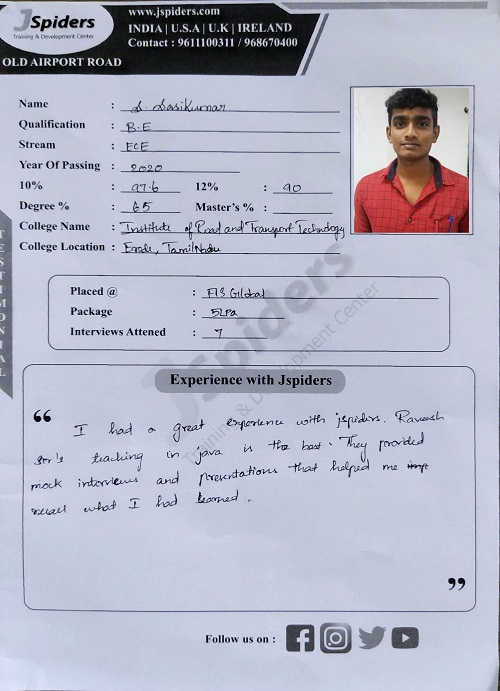 JSpiders
Training & Development Center
OLD AIRPORT ROAD
www.jspiders.com
INDIA | U.S.A | U.K | IRELAND
Contact : 9611100311 / 968670400
Name : S. Sasikumar
Qualification : B.E
Stream : ECE
Year Of Passing : 2020
10% : 97.6 12% : 90
Degree % : 65 Master's % :
College Name : Institute of Road and Transport Technology
College Location : Erode, TamilNadu
TESTIMONIAL
Placed @ : FIS Global
Package : 5LPa
Interviews Attened : 7
Jspiders
Training & Development Center
Experience with Jspiders
“ I had a great experience with jspiders. Raveesh
sir's teaching in java is the best. They provided
mock interviews and presentations that helped me
recall what I had learned. ”
Follow us on :